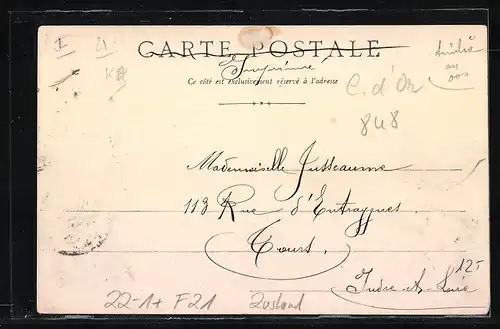 CARTE POSTALE
Imprimé
Ce côté est exclusivement réservé à l'adresse
C. d'Or
848
Mademoiselle Jusseaume
113 Rue d'Entraygues
Tours.
12.-
Indre-et-Loire
22-1+ F21 Zustand